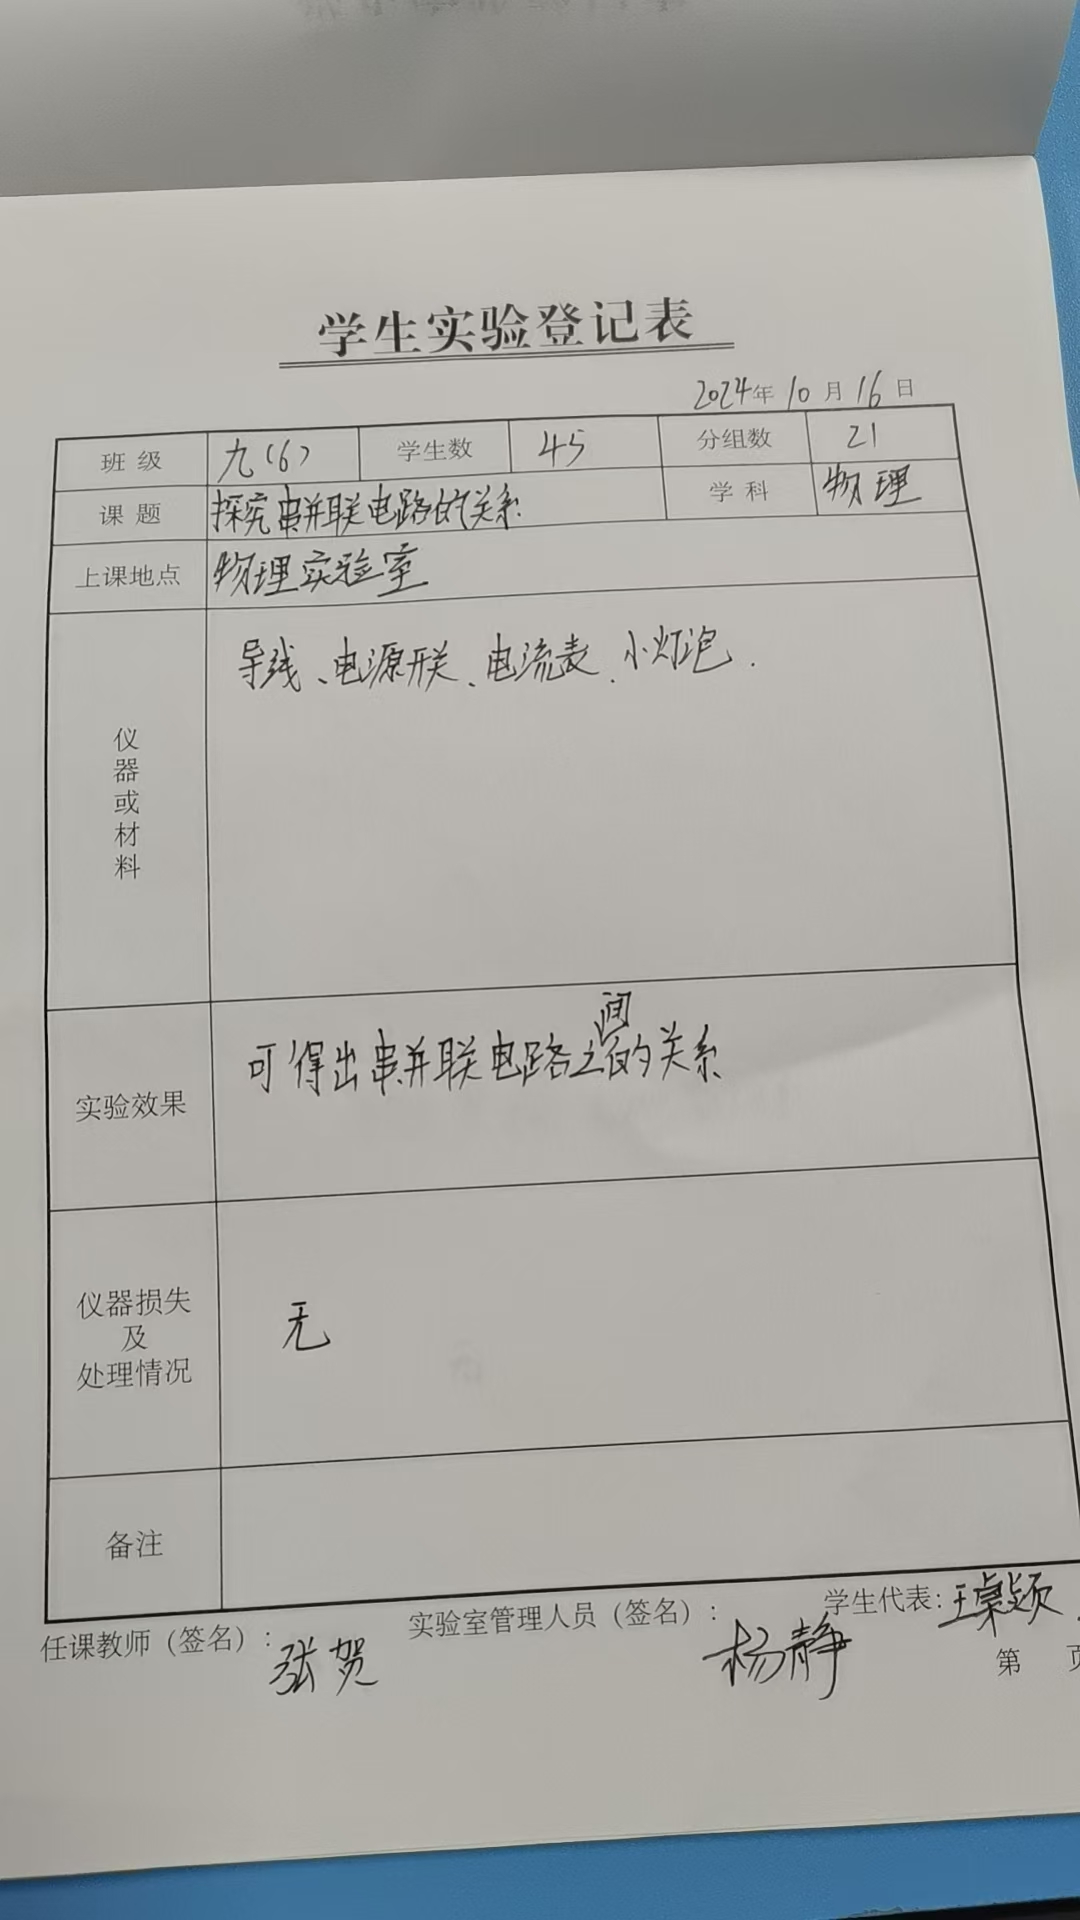 学生实验登记表
2024年10月16日
班级 九(6) 学生数 45 分组数 21
课题 探究串并联电路的关系 学科 物理
上课地点 物理实验室
仪器或材料 导线、电源开关、电流表、小灯泡.
实验效果 可得出串并联电路之间的关系
仪器损失及处理情况 无
备注
任课教师（签名）：张贺 实验室管理人员（签名）：杨静 学生代表：王颖
第 页